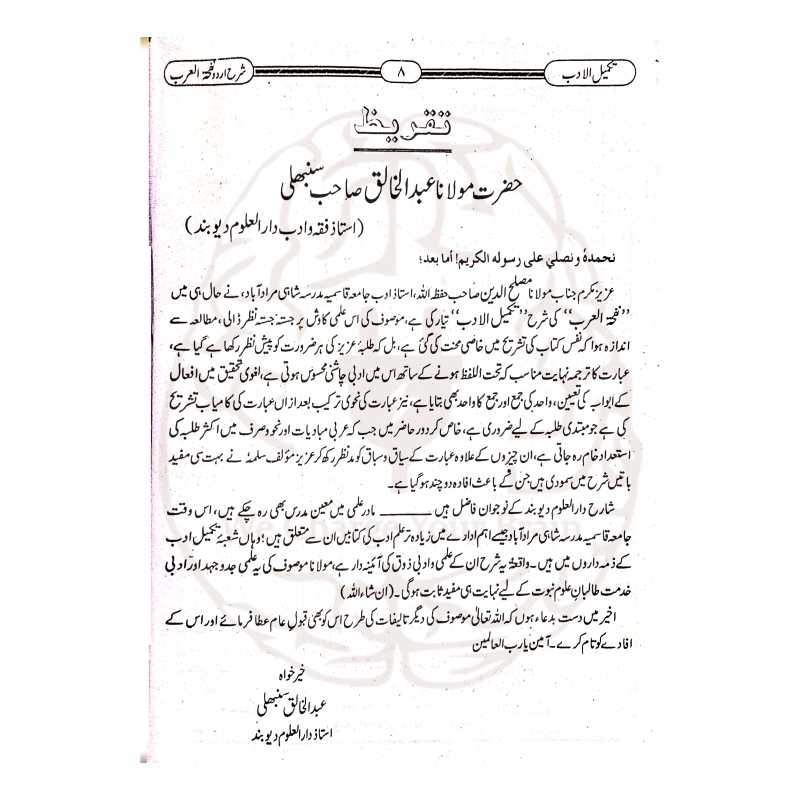 تکمیل الادب
۸
شرح اردو نفحۃ العرب
تقریظ
حضرت مولانا عبدالخالق صاحب سنبھلی
(استاذ فقہ وادب دارالعلوم دیوبند)
نحمدہٗ و نصلی علی رسولہ الکریم! أما بعد؛
عزیز مکرم جناب مولانا مصلح الدین صاحب حفظہ اللہ، استاذ ادب جامعہ قاسمیہ مدرسہ شاہی مرادآباد، نے حال ہی میں
”نفحۃ العرب“ کی شرح ”تکمیل الادب“ تیار کی ہے، موصوف کی اس علمی کاوش پر جستہ جستہ نظر ڈالی، مطالعہ سے
اندازہ ہوا کہ نفس کتاب کی تشریح میں خاصی محنت کی گئی ہے، بل کہ طلبۂ عزیز کی ہر ضرورت کو پیش نظر رکھا ہے گیا ہے،
عبارت کا ترجمہ نہایت مناسب کہ تحت اللفظ ہونے کے ساتھ اس میں ادبی چاشنی محسوس ہوتی ہے، لغوی تحقیق میں افعال
کے ابواب کی تعیین، واحد کی جمع اور جمع کا واحد بھی بتایا ہے، نیز عبارت کی نحوی ترکیب بعد ازاں عبارت کی کامیاب تشریح
کی ہے جو مبتدی طلبہ کے لیے ضروری ہے، خاص کر دور حاضر میں جب کہ عربی مبادیات اور نحو وصرف میں اکثر طلبہ کی
استعداد خام رہ جاتی ہے، ان چیزوں کے علاوہ عبارت کے سیاق وسباق کو مدنظر رکھ کر عزیز مؤلف سلمہٗ نے بہت سی مفید
باتیں شرح میں سمودی ہیں جن کے باعث افادہ دو چند ہو گیا ہے۔
شارح دارالعلوم دیوبند کے نوجوان فاضل ہیں ــــــــــــ مادر علمی میں معین مدرس بھی رہ چکے ہیں، اس وقت
جامعہ قاسمیہ مدرسہ شاہی مرادآباد جیسے اہم ادارے میں زیادہ تر علم ادب کی کتابیں ان سے متعلق ہیں؛ وہاں شعبۂ تکمیل ادب
کے ذمہ داروں میں ہیں۔ واقعۃً یہ شرح ان کے علمی وادبی ذوق کی آئینہ دار ہے، مولانا موصوف کی یہ علمی جدوجہد اور ادبی
خدمت طالبان علوم نبوت کے لیے نہایت ہی مفید ثابت ہوگی۔ (ان شاء اللہ)
اخیر میں دست بدعاء ہوں کہ اللہ تعالیٰ موصوف کی دیگر تالیفات کی طرح اس کو بھی قبول عام عطا فرمائے اور اس کے
افادے کو تام کرے۔ آمین یارب العالمین
خیر خواہ
عبدالخالق سنبھلی
استاذ دارالعلوم دیوبند